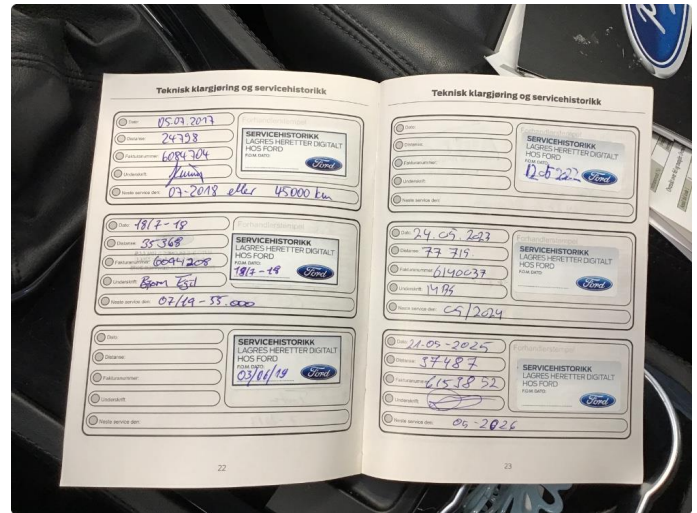 Teknisk klargjøring og servicehistorikk
Dato: 05.07.2017
Distanse: 24798
Fakturanummer: 6084704
Underskrift:
Neste service den: 07-2018 eller 45000 km
SERVICEHISTORIKK
LAGRES HERETTER DIGITALT
HOS FORD
F.O.M. DATO:
Ford
Dato: 18/7-18
Distanse: 35368
Fakturanummer: 6094208
Underskrift: Bjørn Egil
Neste service den: 07/19-55.000
SERVICEHISTORIKK
LAGRES HERETTER DIGITALT
HOS FORD
F.O.M. DATO:
18/7-18
Ford
Dato:
Distanse:
Fakturanummer:
Underskrift:
Neste service den:
SERVICEHISTORIKK
LAGRES HERETTER DIGITALT
HOS FORD
F.O.M. DATO:
Ford
22
Teknisk klargjøring og servicehistorikk
Dato:
Distanse:
Fakturanummer:
Underskrift:
Neste service den:
SERVICEHISTORIKK
LAGRES HERETTER DIGITALT
HOS FORD
F.O.M. DATO:
Ford
Dato: 24.05.2023
Distanse: 77 715
Fakturanummer: 6140037
Underskrift:
Neste service den: 05/2024
SERVICEHISTORIKK
LAGRES HERETTER DIGITALT
HOS FORD
F.O.M. DATO:
Ford
Dato: 21-05-2025
Distanse: 37487
Fakturanummer: 6153852
Underskrift:
Neste service den: 05-2026
Forhandlerstempel
SERVICEHISTORIKK
LAGRES HERETTER DIGITALT
HOS FORD
F.O.M. DATO:
Ford
23